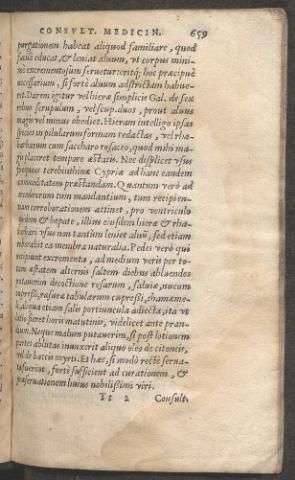 CONSVET. MEDICIN. 659
purgationem habeat aliquod familiare, quod
facilè educat, & leniat aluum, vt corpus mini-
mè excrementosum seruetur: eritq; hoc præcipuè
necessarium, si fortè aluum adstrictam habue-
rit. Darem igitur vel hieræ simplicis Gal. de sex-
tribus scrupulum, vel scup. duos, prout aluus
magis vel minus obediet. Hieram intelligo ipsas
species in pilularum formam redactas, vel rha-
barbarum cum saccharo rosaceo, quod mihi ma-
gis placeret tempore æstatis. Nec displicet vsus
propius terebinthinæ Cypriæ ad hanc eandem
commoditatem præstandam. Quantum verò ad
membrorum tum mandantium, tum recipien-
tium corroborationem attinet, pro ventriculo
quidem & hepate, illius eiusdem hieræ & rha-
barbari vsus non tantùm leniet aluũ, sed etiam
roborabit ea membra naturalia. Pedes verò qui
recipiunt excrementa, ad medium veris per to-
tam æstatem alternis saltem diebus abluendos
putauerim decoctione rosarum, saluiæ, nucum
cupressi, rasuræ tabularum cupressi, chamæme-
li, aliqua etiam salis portiuncula adiecta, ita vt
id fieret horis matutinis, videlicet ante pran-
dium. Neque malum putauerim, si post lotionem
partes ablutas inunxerit aliquo oleo de citoneis,
vel de baccis myrti. Et hæc, si modò rectè serua-
ta fuerint, fortè sufficient ad curationem, &
præseruationem huius nobilissimi viri.
Tt 2 Consult.